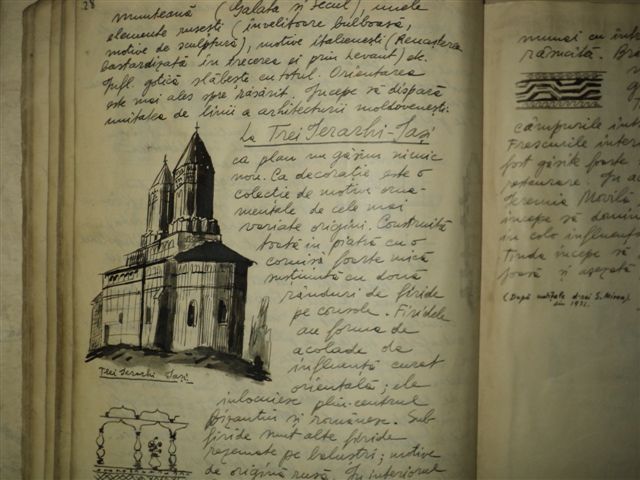 28
munteană (Galata și Secul), unele
elemente rusești (învelitoare bulboasă,
motive de sculptură), motive italienești (Renașterea
bastardizată în trecerea ei prin Levant) etc.
Infl. gotică slăbește cu totul. Orientarea
este mai ales spre răsărit. Începe să dispară
unitatea de linii a arhitecturii moldovenești.
La Trei Ierarhi - Iași
ca plan nu găsim nimic
nou. Ca decorație este o
colecție de motive orna-
mentale de cele mai
variate origini. Construită
toată în piatră cu o
cornișă foarte mică
susținută cu două
rânduri de firide
pe console. Firidele
au forma de
acolade de
influență curat
orientală; ele
înlocuiesc plin-centrul
bizantin și românesc. Sub
firide sunt alte firide
rezemate pe baluștri; motive
de origină rusă. În interiorul
Trei Ierarhi Iași
numai cu
răsucită.
câmpurile
Frescurile
fost găsite foarte
restaurare. În
Ieremia Movilă
începe să
în colo
Tinda începe să
joasă și așezată
(După notițele d-rei
din 1932.